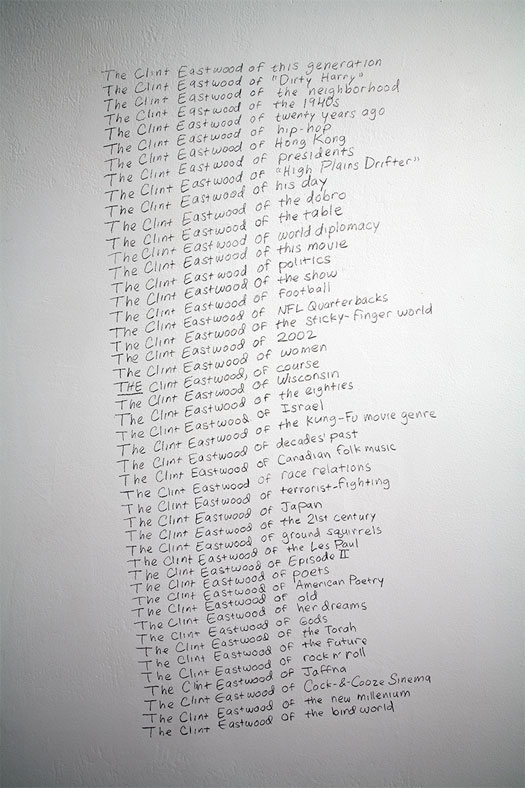 The Clint Eastwood of this generation
The Clint Eastwood of "Dirty Harry"
The Clint Eastwood of the neighborhood
The Clint Eastwood of the 1940s
The Clint Eastwood of twenty years ago
The Clint Eastwood of hip-hop
The Clint Eastwood of Hong Kong
The Clint Eastwood of presidents
The Clint Eastwood of "High Plains Drifter"
The Clint Eastwood of his day
The Clint Eastwood of the dobro
The Clint Eastwood of the table
The Clint Eastwood of world diplomacy
The Clint Eastwood of this movie
The Clint Eastwood of politics
The Clint Eastwood of the show
The Clint Eastwood of football
The Clint Eastwood of NFL Quarterbacks
The Clint Eastwood of the sticky-finger world
The Clint Eastwood of 2002
The Clint Eastwood of women
THE Clint Eastwood, of course
The Clint Eastwood of Wisconsin
The Clint Eastwood of the eighties
The Clint Eastwood of Israel
The Clint Eastwood of the Kung-Fu movie genre
The Clint Eastwood of decades' past
The Clint Eastwood of Canadian folk music
The Clint Eastwood of race relations
The Clint Eastwood of terrorist-fighting
The Clint Eastwood of Japan
The Clint Eastwood of the 21st century
The Clint Eastwood of ground squirrels
The Clint Eastwood of the Les Paul
The Clint Eastwood of Episode II
The Clint Eastwood of poets
The Clint Eastwood of American Poetry
The Clint Eastwood of old
The Clint Eastwood of her dreams
The Clint Eastwood of Gods
The Clint Eastwood of the Torah
The Clint Eastwood of the future
The Clint Eastwood of rock n' roll
The Clint Eastwood of Jaffna
The Clint Eastwood of Cock-&-Cooze Sinema
The Clint Eastwood of the new millenium
The Clint Eastwood of the bird world